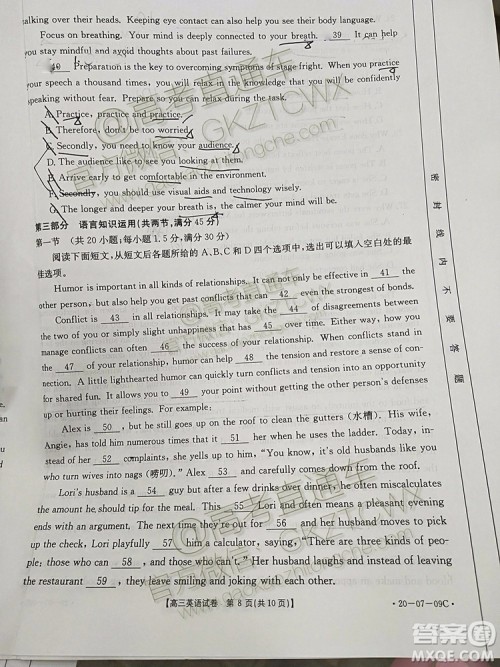 talking over their heads. Keeping eye contact can also help you send their body language.
Focus on breathing. Your mind is deeply connected to your breath. 39 It can help
you stay mindful and avoid thoughts about past failures.
40 Preparation is the key to overcoming symptoms of stage fright. When you practice
your speech a thousand times, you will relax in the knowledge that you will be confidently
speaking without fear. Prepare so you can relax during the task.
A. Practice, practice and practice.
B. Therefore, don't be too worried.
C. Secondly, you need to know your audience.
D. The audience like to see you looking at them.
E. Arrive early to get comfortable in the environment.
F. Secondly, you should use visual aids and technology wisely.
G. The longer and deeper your breath is, the calmer your mind will be.
第三部分 语言知识运用(共两节,满分45分)
第一节 (共20小题;每小题1.5分,满分30分)
阅读下面短文,从短文后各题所给的A、B、C和D四个选项中,选出可以填入空白处的最
佳选项。
Humor is important in all kinds of relationships. It can not only be effective in 41 the
other person, but also help get past conflicts that can 42 even the strongest of bonds.
Conflict is 43 in all relationships. It may take the 44 of disagreements between
the two of you or simply slight unhappiness that has 45 over time. Either way, how you
manage conflicts can often 46 the success of your relationship. When conflicts stand in
the 47 of your relationship, humor can help 48 the tension and restore a sense of con-
nection. A little lighthearted humor can quickly turn conflicts and tension into an opportunity
for fun. It allows you to 49 your point without getting the other person's defenses
up or hurting their feelings. For example:
Alex is 50 , but he still goes up on the roof to clean the gutters (水槽). His wife,
Angie, has told him numerous times that it 51 her when he uses the ladder. Today, in-
stead of her 52 complaints, she yells up to him, "You know, it's old husbands like you
who turn wives into nags (唠叨)." Alex 53 and carefully comes down from the roof.
Lori's husband is a 54 guy but after a few drinks over dinner, he tends to miscalculate
the amount he should tip for the meal. This makes Lori 55 and often a pleasant evening
ends with an argument. The time they're out for 56 and her husband moves to
pick up the check, Lori playfully 57 him a calculator, saying, "There are times for
those people who can 58 , and those who can't." Her husband laughs and instead of leaving
the restaurant 59 , they leave smiling and joking with each other.
【高三英语试卷 第8页(共10页)】
·20-07-09C·
密封线内不要答题
@高考直通车
官方微信:GKZTCWX
答案圈
MXQE.COM